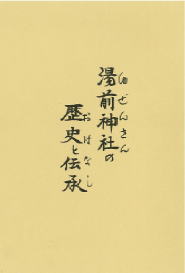 ゆぜんさん
湯前神社の
おはなし
歴史と伝承